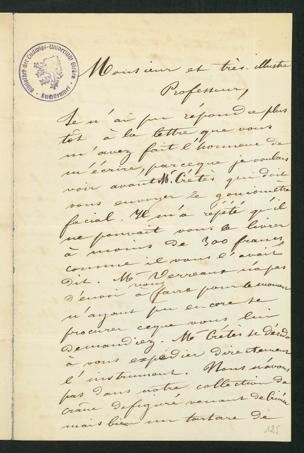 Monsieur et très illustre
Professeur,
Je n'ai pu répondre plus
tôt à la lettre que vous
m'avez fait l'honneur de
m'écrire, parceque je voulais
voir avant Mr. Crétès qui doit
vous envoyer le goniomètre
facial. Il m'a répété qu'il
ne pouvait vous le livrer
à moins de 300 francs
comme il vous l'avait
dit. Mr Verreaux n'a pas
d'envoi à vous faire pour le moment
n'ayant pu encore se
procurer ce que vous lui
demandiez. Mr Crétès se décide
à vous expédier directement
l'instrument. Nous n'avons
pas dans notre collection de
crâne défiguré venant de Crimée
mais bien un tartare de
125